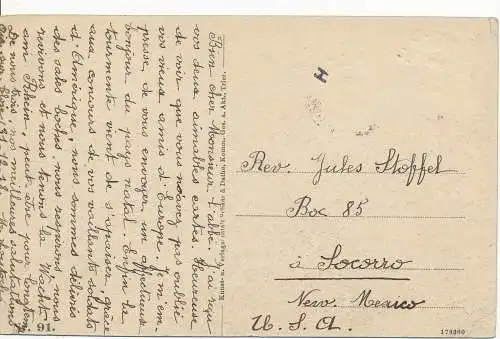 Bien cher Monsieur l'abbé. J'ai reçu
vos deux aimables cartes. Heureuse
de voir que vous n'avez pas oublié
vos vieux amis d'Europe. Je m'em
presse de vous envoyer un affectueux
bonjour du pays natal. Enfin la
tourmente vient de s'apaiser, grâce
aux concours de vos vaillants soldats
d'Amérique, nous sommes délivrés
des sales boches. nous respirons, nous
revivons et nous tenons la Wacht
am Rhein peut-être pour longtemps
De nous trois nos meilleures salutations
Kunst- u. Verlags- & Dalbin, Komm.-Ges. a. Abt. Trier.
Nr. 91.
H
Rev. Jules Stoffel
Box 85
à Socorro
New. Mexico
U. S. A.
174300